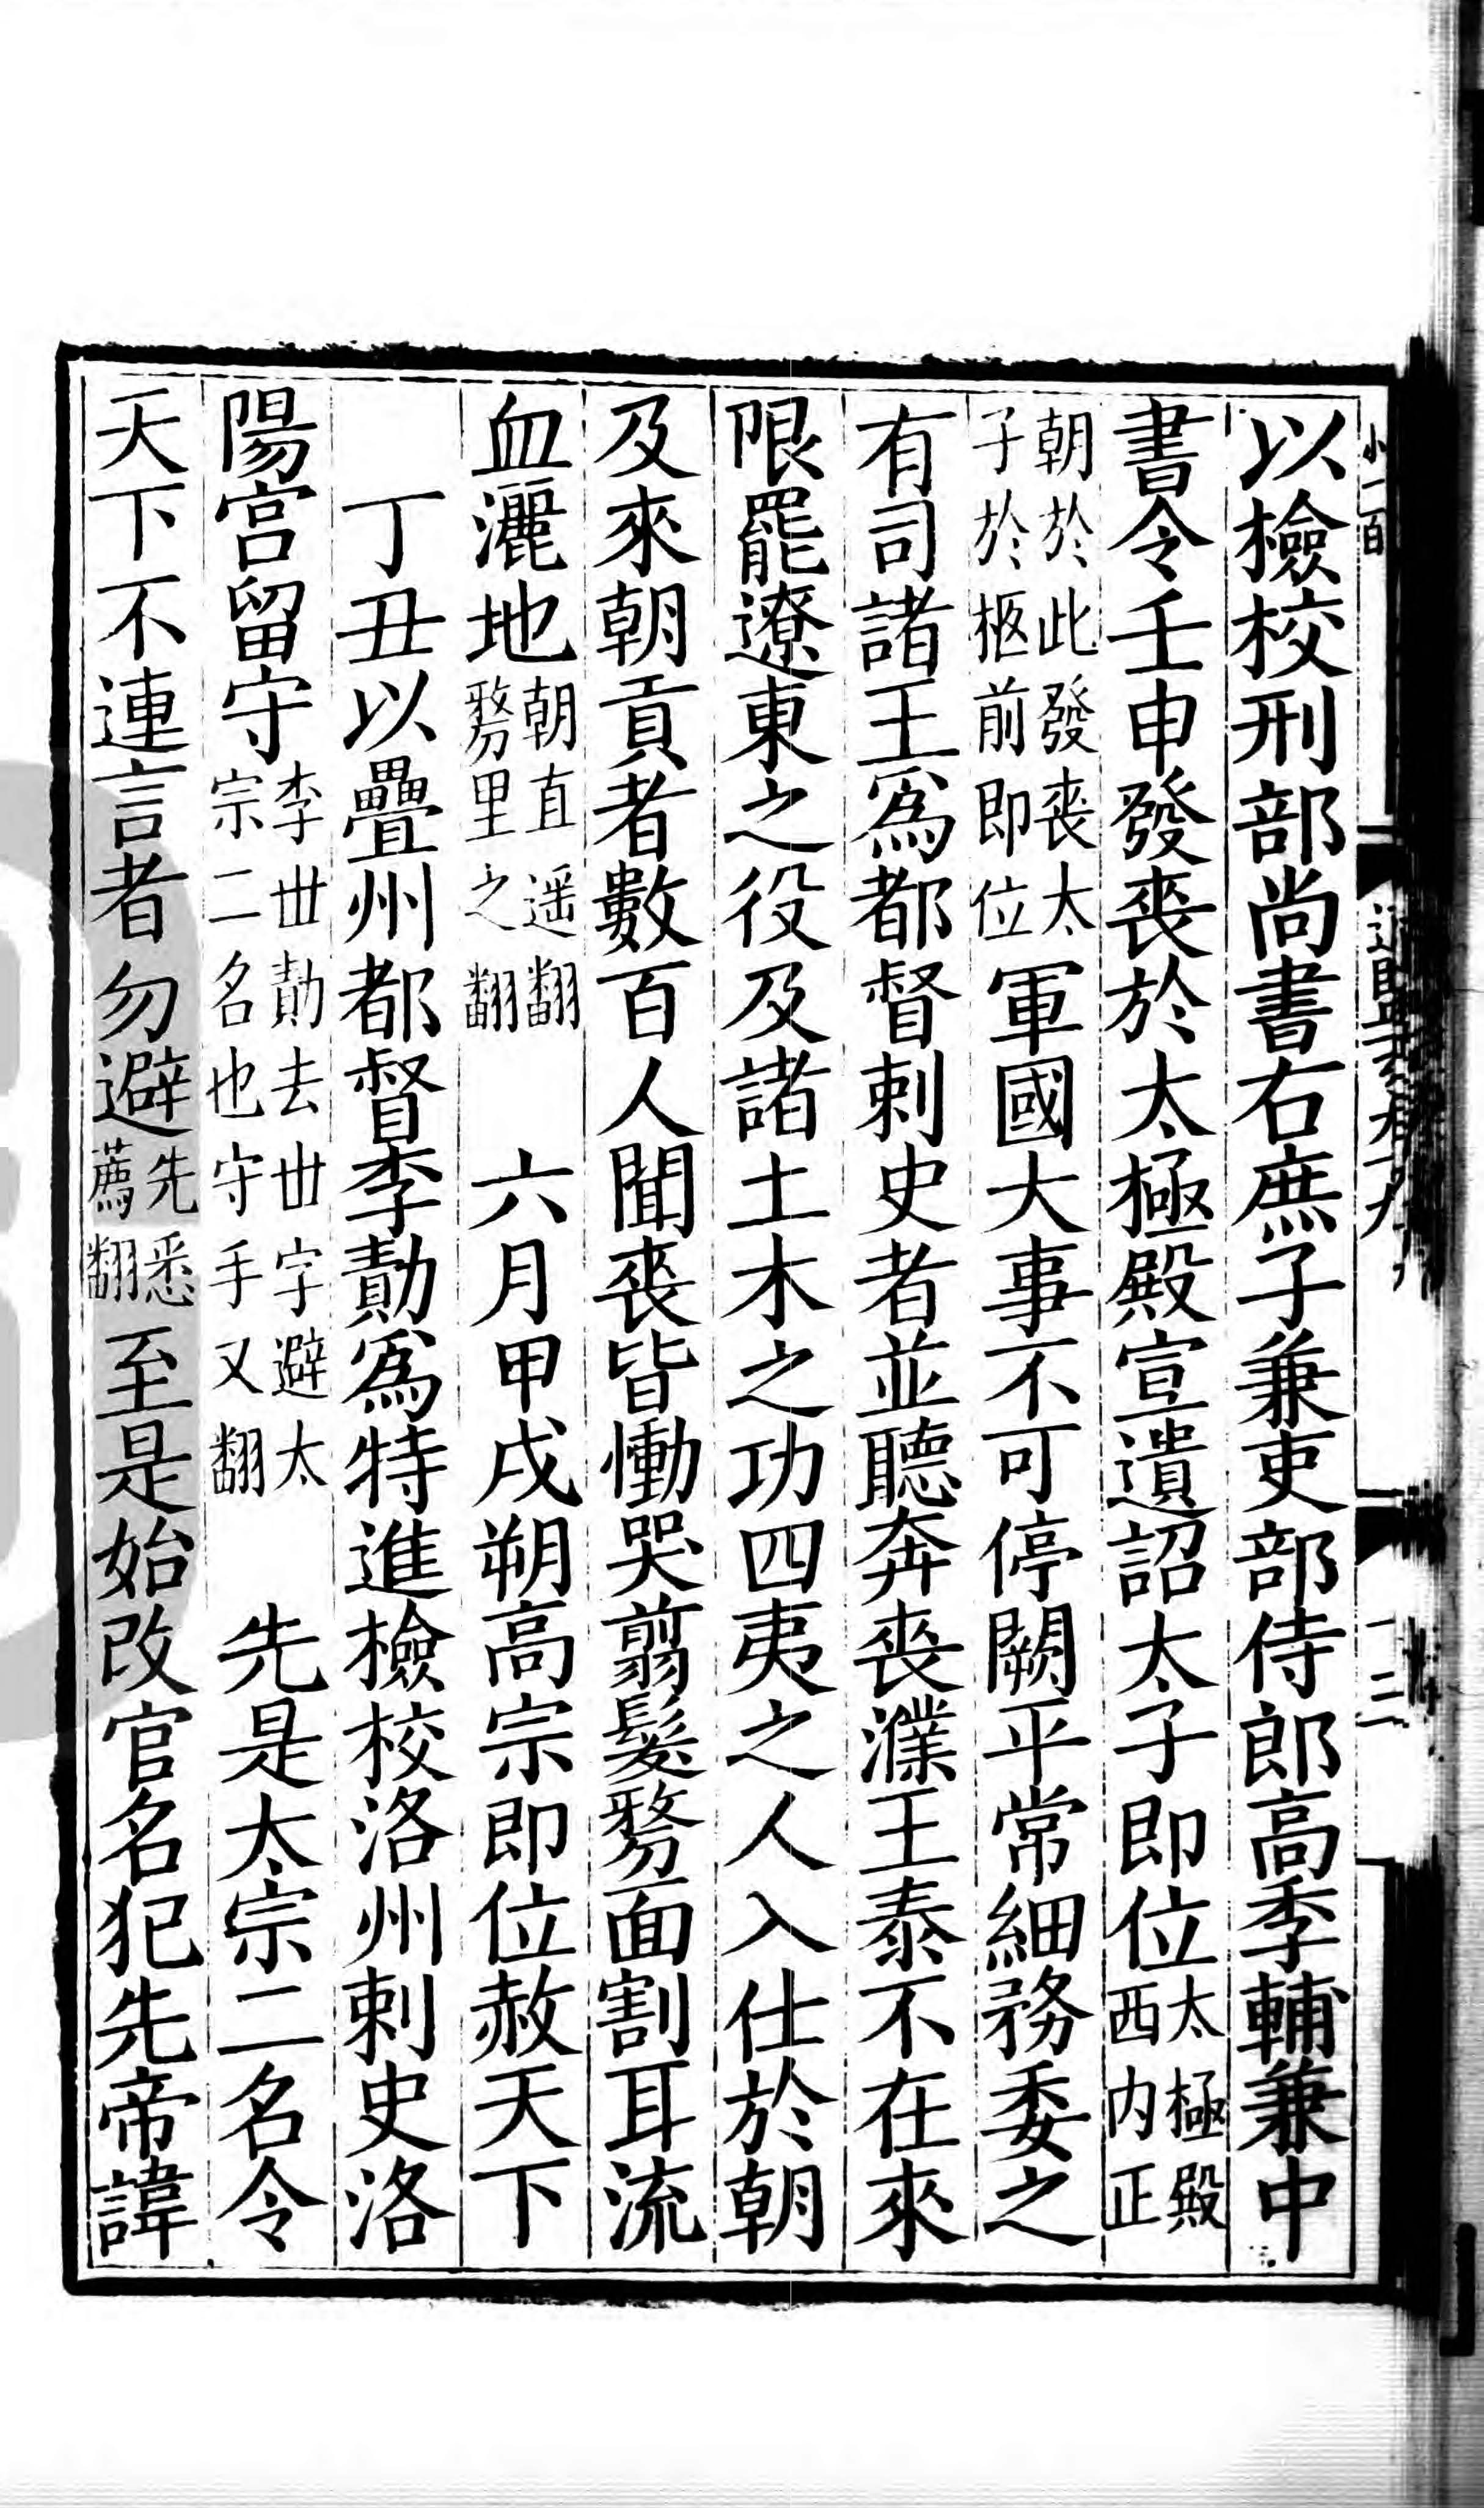 以檢校刑部尚書右庶子兼吏部侍郎高季輔兼中
書令壬申發喪於太極殿宣遺詔太子即位太極殿西内正
朝於此發喪太子於柩前即位軍國大事不可停闕平常細務委之
有司諸王爲都督剌史者並聽奔喪濮王泰不在來
限罷遼東之役及諸土木之功四夷之人入仕於朝
及來朝貢者數百人聞喪皆慟哭翦髮剺面割耳流
血灑地朝直遥翻剺里之翻 六月甲戌朔高宗即位赦天下
丁丑以疊州都督李勣爲特進檢校洛州剌史洛
陽宮留守李丗勣去丗字避太宗二名也守手又翻 先是太宗二名令
天下不連言者勿避先悉薦翻至是始改官名犯先帝諱
小二百
三